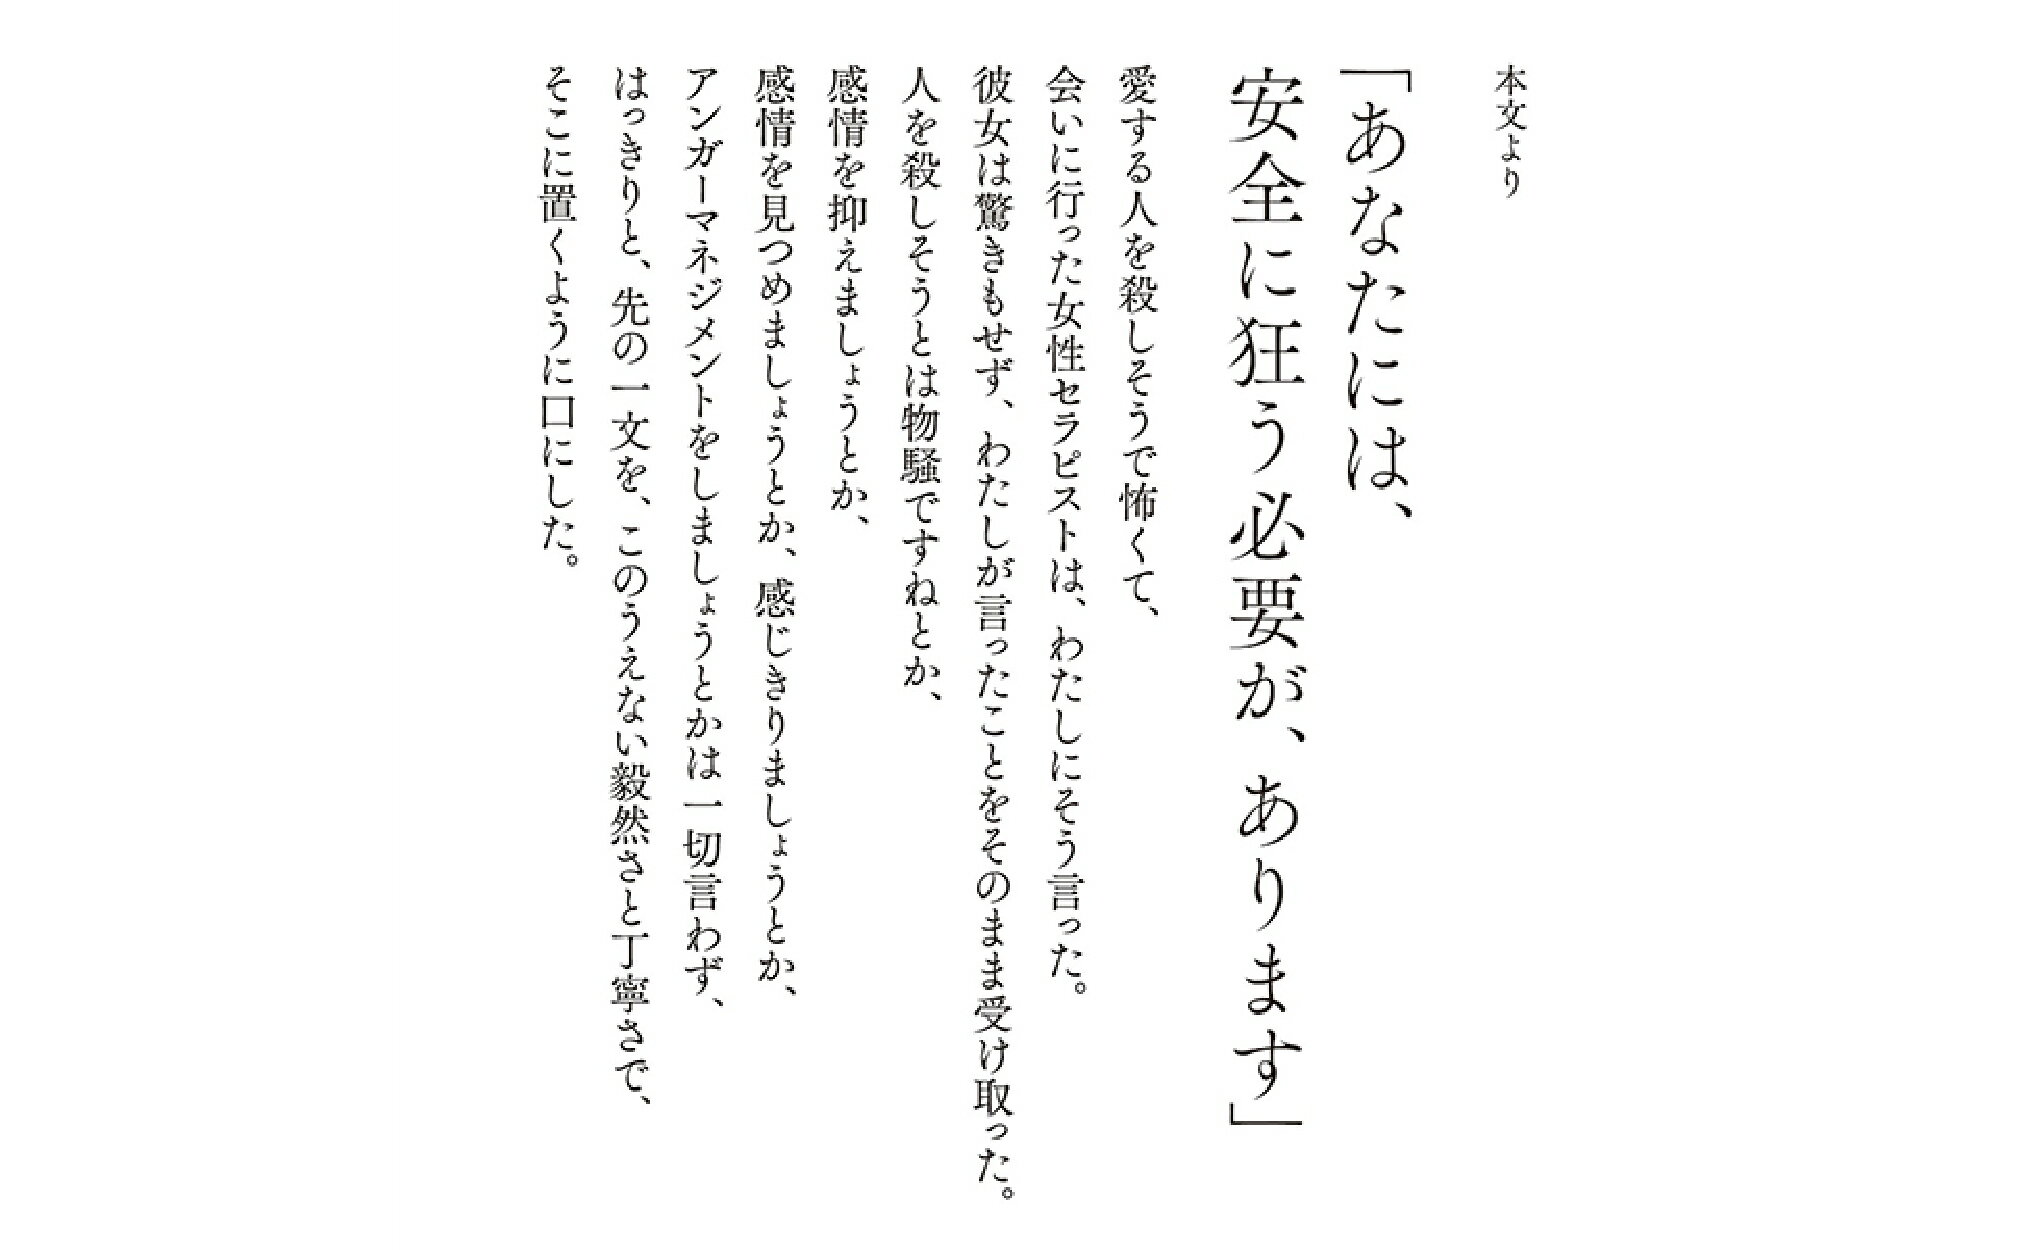 本文より
「あなたには、
安全に狂う必要が、あります」
愛する人を殺しそうで怖くて、
会いに行った女性セラピストは、わたしにそう言った。
彼女は驚きもせず、わたしが言ったことをそのまま受け取った。
人を殺しそうとは物騒ですねとか、
感情を抑えましょうとか、
感情を見つめましょうとか、感じきりましょうとか、
アンガーマネジメントをしましょうとかは一切言わず、
はっきりと、先の一文を、このうえない毅然さと丁寧さで、
そこに置くように口にした。